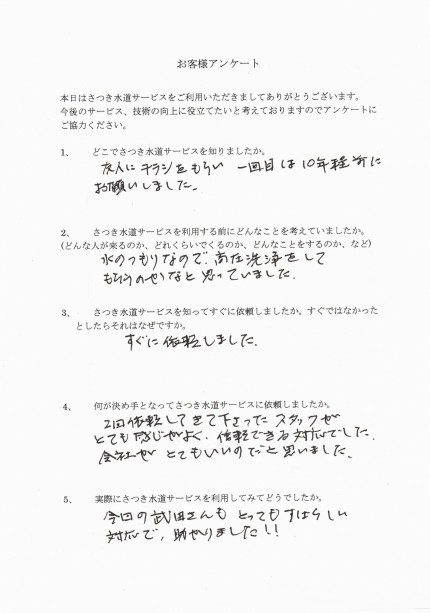 お客様アンケート
本日はさつき水道サービスをご利用いただきましてありがとうございます。
今後のサービス、技術の向上に役立てたいと考えておりますのでアンケートに
ご協力ください。
1、 どこでさつき水道サービスを知りましたか。
友人にチラシをもらい 一回目は10年程前に
お願いしました。
2、 さつき水道サービスを利用する前にどんなことを考えていましたか。
(どんな人が来るのか、どれくらいでくるのか、どんなことをするのか、など)
水のつまりなので、高圧洗浄をして
もらうのかなと思っていました。
3、 さつき水道サービスを知ってすぐに依頼しましたか。すぐではなかった
としたらそれはなぜですか。
すぐに依頼しました。
4、 何が決め手となってさつき水道サービスに依頼しましたか。
2回依頼してきて下さったスタッフが
とても感じがよく、信頼できる対応でした。
会社が とてもいいのだと思いました。
5、 実際にさつき水道サービスを利用してみてどうでしたか。
今回の武田さんも とってもすばらしい
対応で、助かりました!!